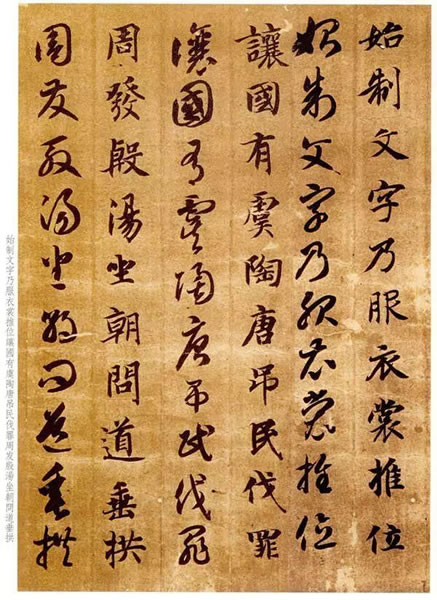 始制文字乃服衣裳推位
始制文字乃服衣裳推位
讓國有虞陶唐弔民伐罪
讓國有虞陶唐弔民伐罪
周發殷湯坐朝問道垂拱
周發殷湯坐朝問道垂拱
始制文字乃服衣裳推位讓國有虞陶唐吊民伐罪周发殷湯坐朝問道垂拱